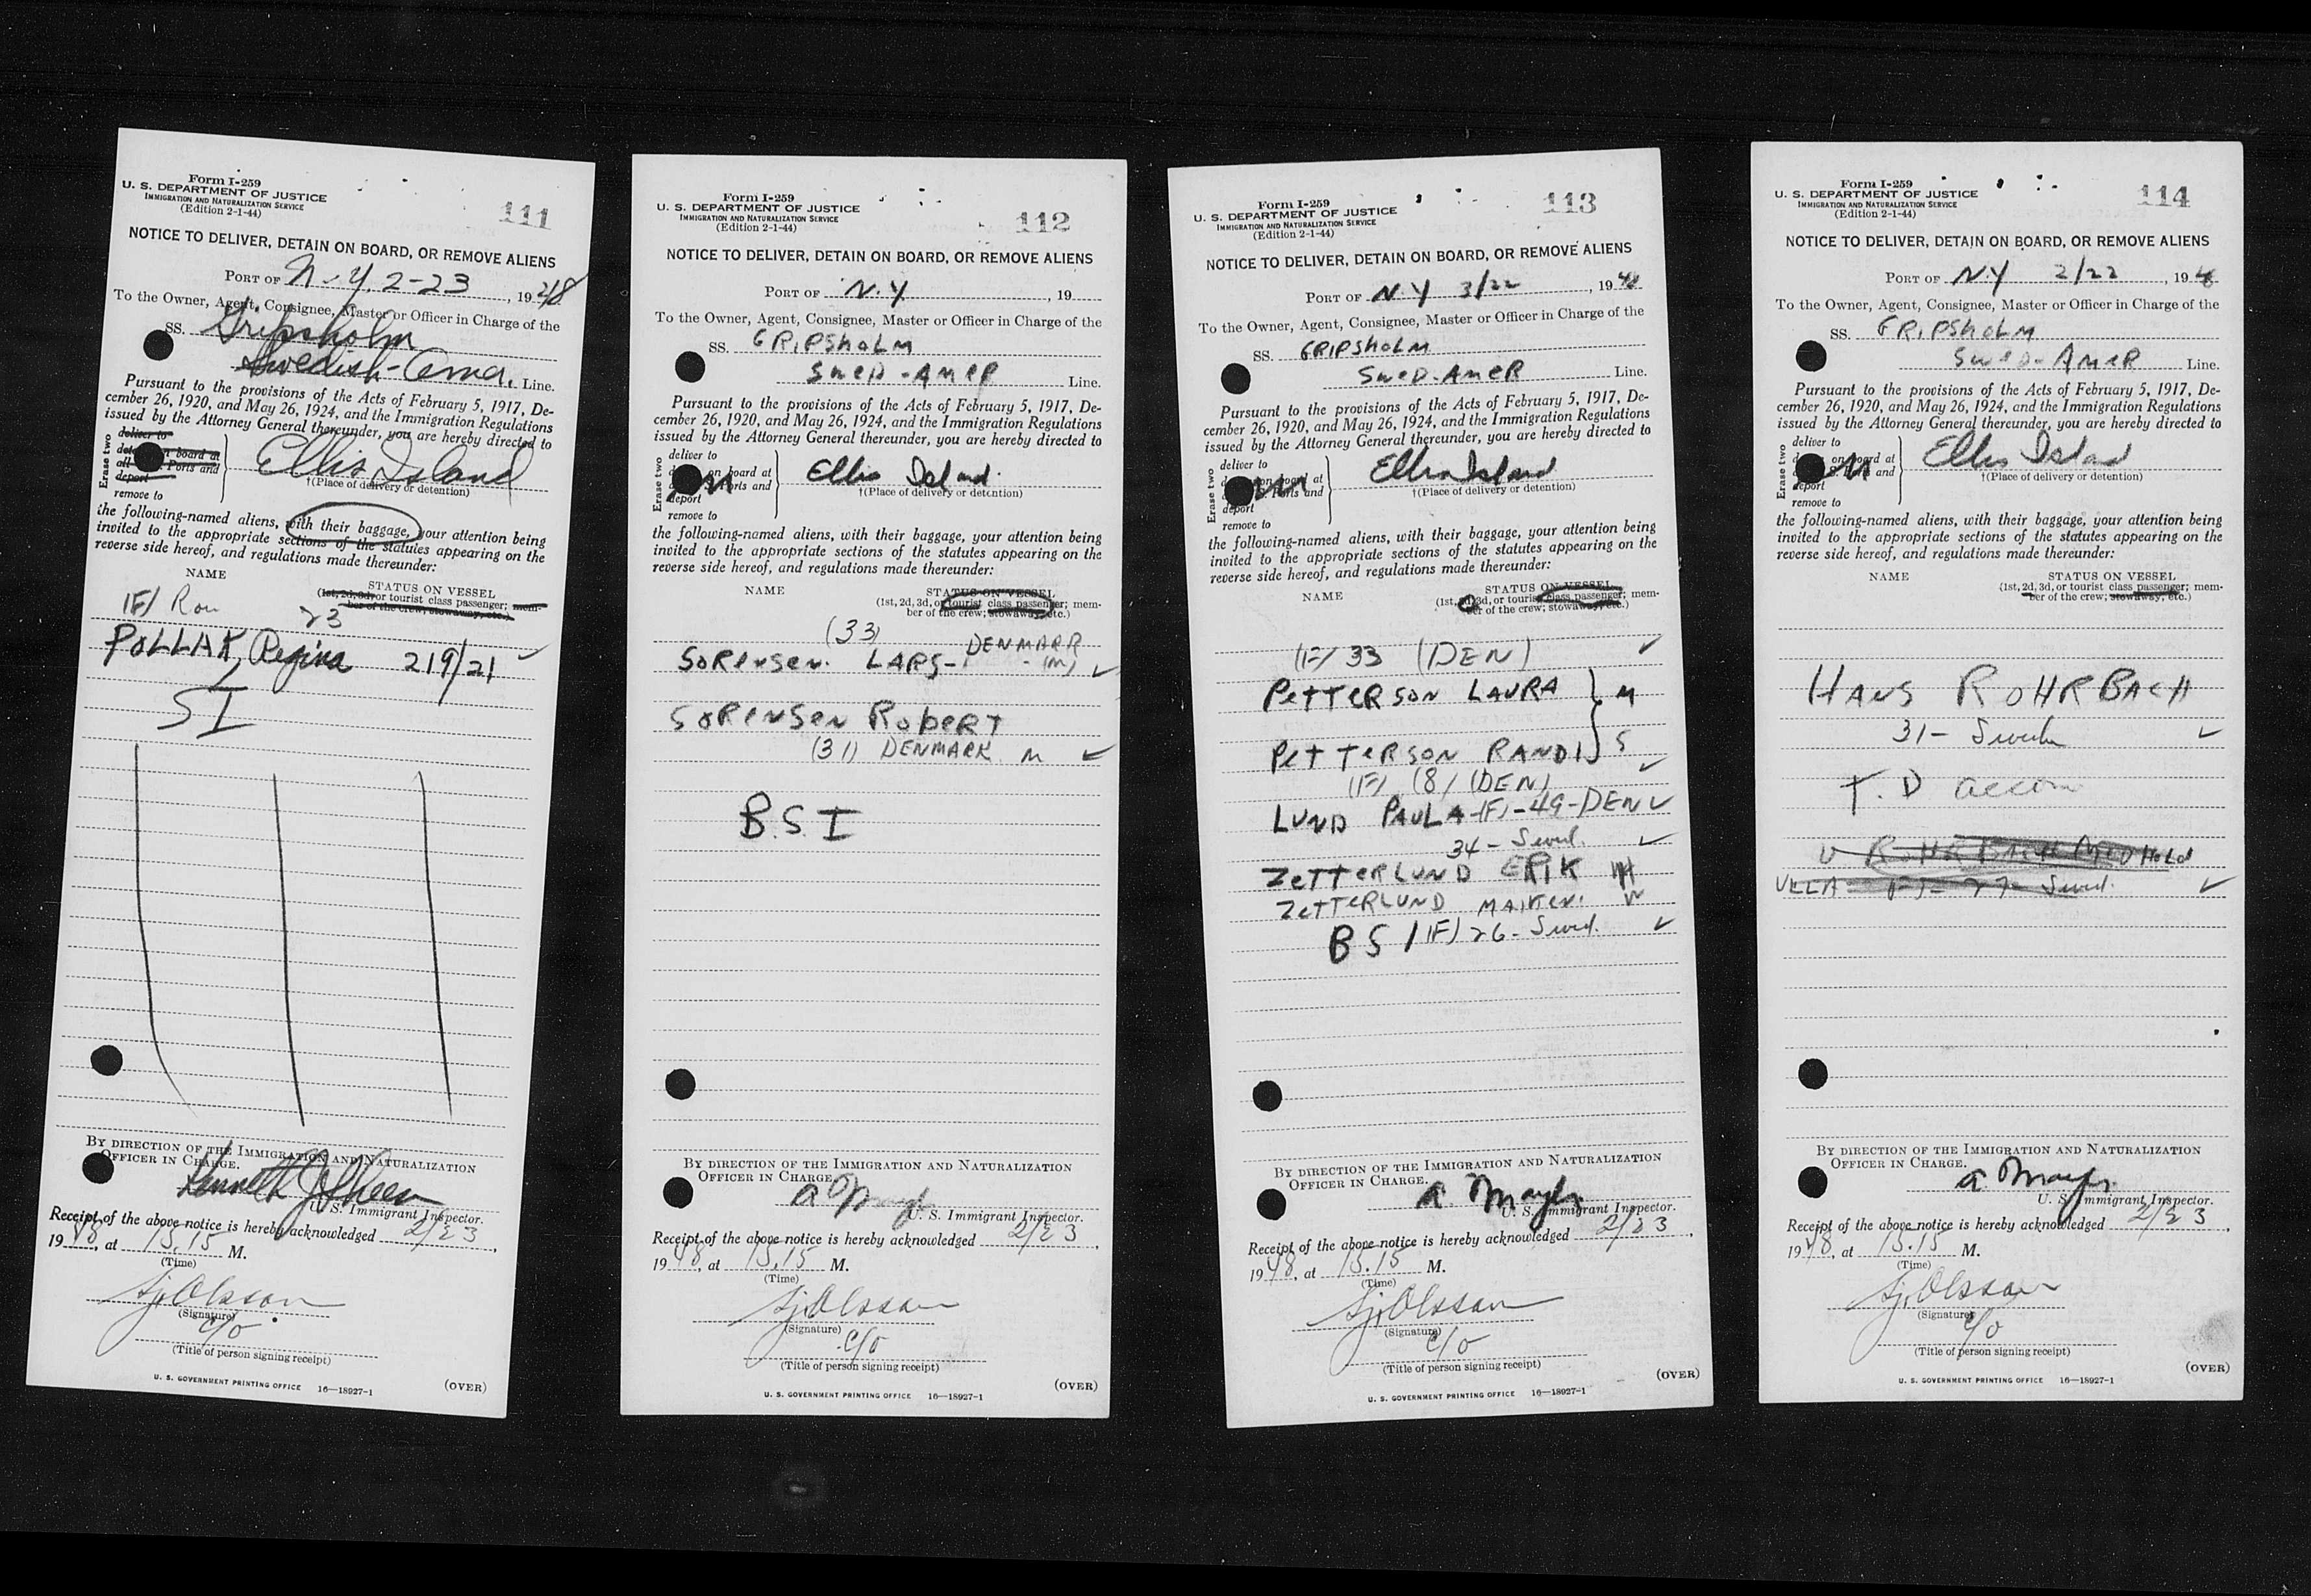 Form I-259
U. S. DEPARTMENT OF JUSTICE
IMMIGRATION AND NATURALIZATION SERVICE
(Edition 2-1-44)
111
NOTICE TO DELIVER, DETAIN ON BOARD, OR REMOVE ALIENS
PORT OF N.Y. 2-23, 1948
To the Owner, Agent, Consignee, Master or Officer in Charge of the
SS. Gripsholm
Swedish-Amer. Line.
Pursuant to the provisions of the Acts of February 5, 1917, De-
cember 26, 1920, and May 26, 1924, and the Immigration Regulations
issued by the Attorney General thereunder, you are hereby directed to
Erase two
deliver to
on board at
all Ports and
deport
remove to
Ellis Island
†(Place of delivery or detention)
the following-named aliens, with their baggage, your attention being
invited to the appropriate sections of the statutes appearing on the
reverse side hereof, and regulations made thereunder:
NAME
STATUS ON VESSEL
(1st, 2d, 3d, or tourist class passenger; mem-
ber of the crew; stowaway, etc.)
(F) Rou
23
POLLAK, Regina 219/21
SI
BY DIRECTION OF THE IMMIGRATION AND NATURALIZATION
OFFICER IN CHARGE.
Kenneth J.
U. S. Immigrant Inspector.
Receipt of the above notice is hereby acknowledged 2/23,
1948, at 15.15 M.
(Time)
Olsson
(Signature)
c/o
(Title of person signing receipt)
U. S. GOVERNMENT PRINTING OFFICE 16—18927-1
(OVER)
Form I-259
U. S. DEPARTMENT OF JUSTICE
IMMIGRATION AND NATURALIZATION SERVICE
(Edition 2-1-44)
112
NOTICE TO DELIVER, DETAIN ON BOARD, OR REMOVE ALIENS
PORT OF N.Y, 19
To the Owner, Agent, Consignee, Master or Officer in Charge of the
SS. GRIPSHOLM
SWED-AMER Line.
Pursuant to the provisions of the Acts of February 5, 1917, De-
cember 26, 1920, and May 26, 1924, and the Immigration Regulations
issued by the Attorney General thereunder, you are hereby directed to
Erase two
deliver to
on board at
Ports and
deport
remove to
Ellis Island
†(Place of delivery or detention)
the following-named aliens, with their baggage, your attention being
invited to the appropriate sections of the statutes appearing on the
reverse side hereof, and regulations made thereunder:
NAME
STATUS ON VESSEL
(1st, 2d, 3d, or tourist class passenger; mem-
ber of the crew; stowaway, etc.)
(33) DENMARK
SORENSEN. LARS- (M)
SORENSEN ROBERT
(31) DENMARK M
B.S I
BY DIRECTION OF THE IMMIGRATION AND NATURALIZATION
OFFICER IN CHARGE.
a
U. S. Immigrant Inspector.
Receipt of the above notice is hereby acknowledged 2/23,
1948, at 15.15 M.
(Time)
Olsson
(Signature)
c/o
(Title of person signing receipt)
U. S. GOVERNMENT PRINTING OFFICE 16—18927-1
(OVER)
Form I-259
U. S. DEPARTMENT OF JUSTICE
IMMIGRATION AND NATURALIZATION SERVICE
(Edition 2-1-44)
113
NOTICE TO DELIVER, DETAIN ON BOARD, OR REMOVE ALIENS
PORT OF N.Y 3/22, 1948
To the Owner, Agent, Consignee, Master or Officer in Charge of the
SS. GRIPSHOLM
SWED-AMER Line.
Pursuant to the provisions of the Acts of February 5, 1917, De-
cember 26, 1920, and May 26, 1924, and the Immigration Regulations
issued by the Attorney General thereunder, you are hereby directed to
Erase two
deliver to
on board at
S. Ports and
deport
remove to
Ellis Island
†(Place of delivery or detention)
the following-named aliens, with their baggage, your attention being
invited to the appropriate sections of the statutes appearing on the
reverse side hereof, and regulations made thereunder:
NAME
STATUS ON VESSEL
(1st, 2d, 3d, or tourist class passenger; mem-
ber of the crew; stowaway, etc.)
(F) 33 (DEN)
PETTERSON LAURA M
PETTERSON RANDI S
(F) (8) (DEN)
LUND PAULA-(F)-49-DEN
34 - Swed.
ZETTERLUND ERIK
ZETTERLUND MAIKEN.
B S I (F) 26- Swed.
BY DIRECTION OF THE IMMIGRATION AND NATURALIZATION
OFFICER IN CHARGE.
a.
U. S. Immigrant Inspector.
Receipt of the above notice is hereby acknowledged 2/23,
1948, at 15.15 M.
(Time)
Olsson
(Signature)
c/o
(Title of person signing receipt)
U. S. GOVERNMENT PRINTING OFFICE 16—18927-1
(OVER)
Form I-259
U. S. DEPARTMENT OF JUSTICE
IMMIGRATION AND NATURALIZATION SERVICE
(Edition 2-1-44)
114
NOTICE TO DELIVER, DETAIN ON BOARD, OR REMOVE ALIENS
PORT OF N.Y 2/22, 1948
To the Owner, Agent, Consignee, Master or Officer in Charge of the
SS. GRIPSHOLM
SWED-AMER Line.
Pursuant to the provisions of the Acts of February 5, 1917, De-
cember 26, 1920, and May 26, 1924, and the Immigration Regulations
issued by the Attorney General thereunder, you are hereby directed to
Erase two
deliver to
on board at
S. Ports and
deport
remove to
Ellis Island
†(Place of delivery or detention)
the following-named aliens, with their baggage, your attention being
invited to the appropriate sections of the statutes appearing on the
reverse side hereof, and regulations made thereunder:
NAME
STATUS ON VESSEL
(1st, 2d, 3d, or tourist class passenger; mem-
ber of the crew; stowaway, etc.)
HANS ROHRBACH
31-
T.D accom
ROHRBACH Hold
ULLA (F)- 27- Swed.
BY DIRECTION OF THE IMMIGRATION AND NATURALIZATION
OFFICER IN CHARGE.
a
U. S. Immigrant Inspector.
Receipt of the above notice is hereby acknowledged 2/23,
1948, at 15.15 M.
(Time)
Olsson
(Signature)
c/o
(Title of person signing receipt)
U. S. GOVERNMENT PRINTING OFFICE 16—18927-1
(OVER)